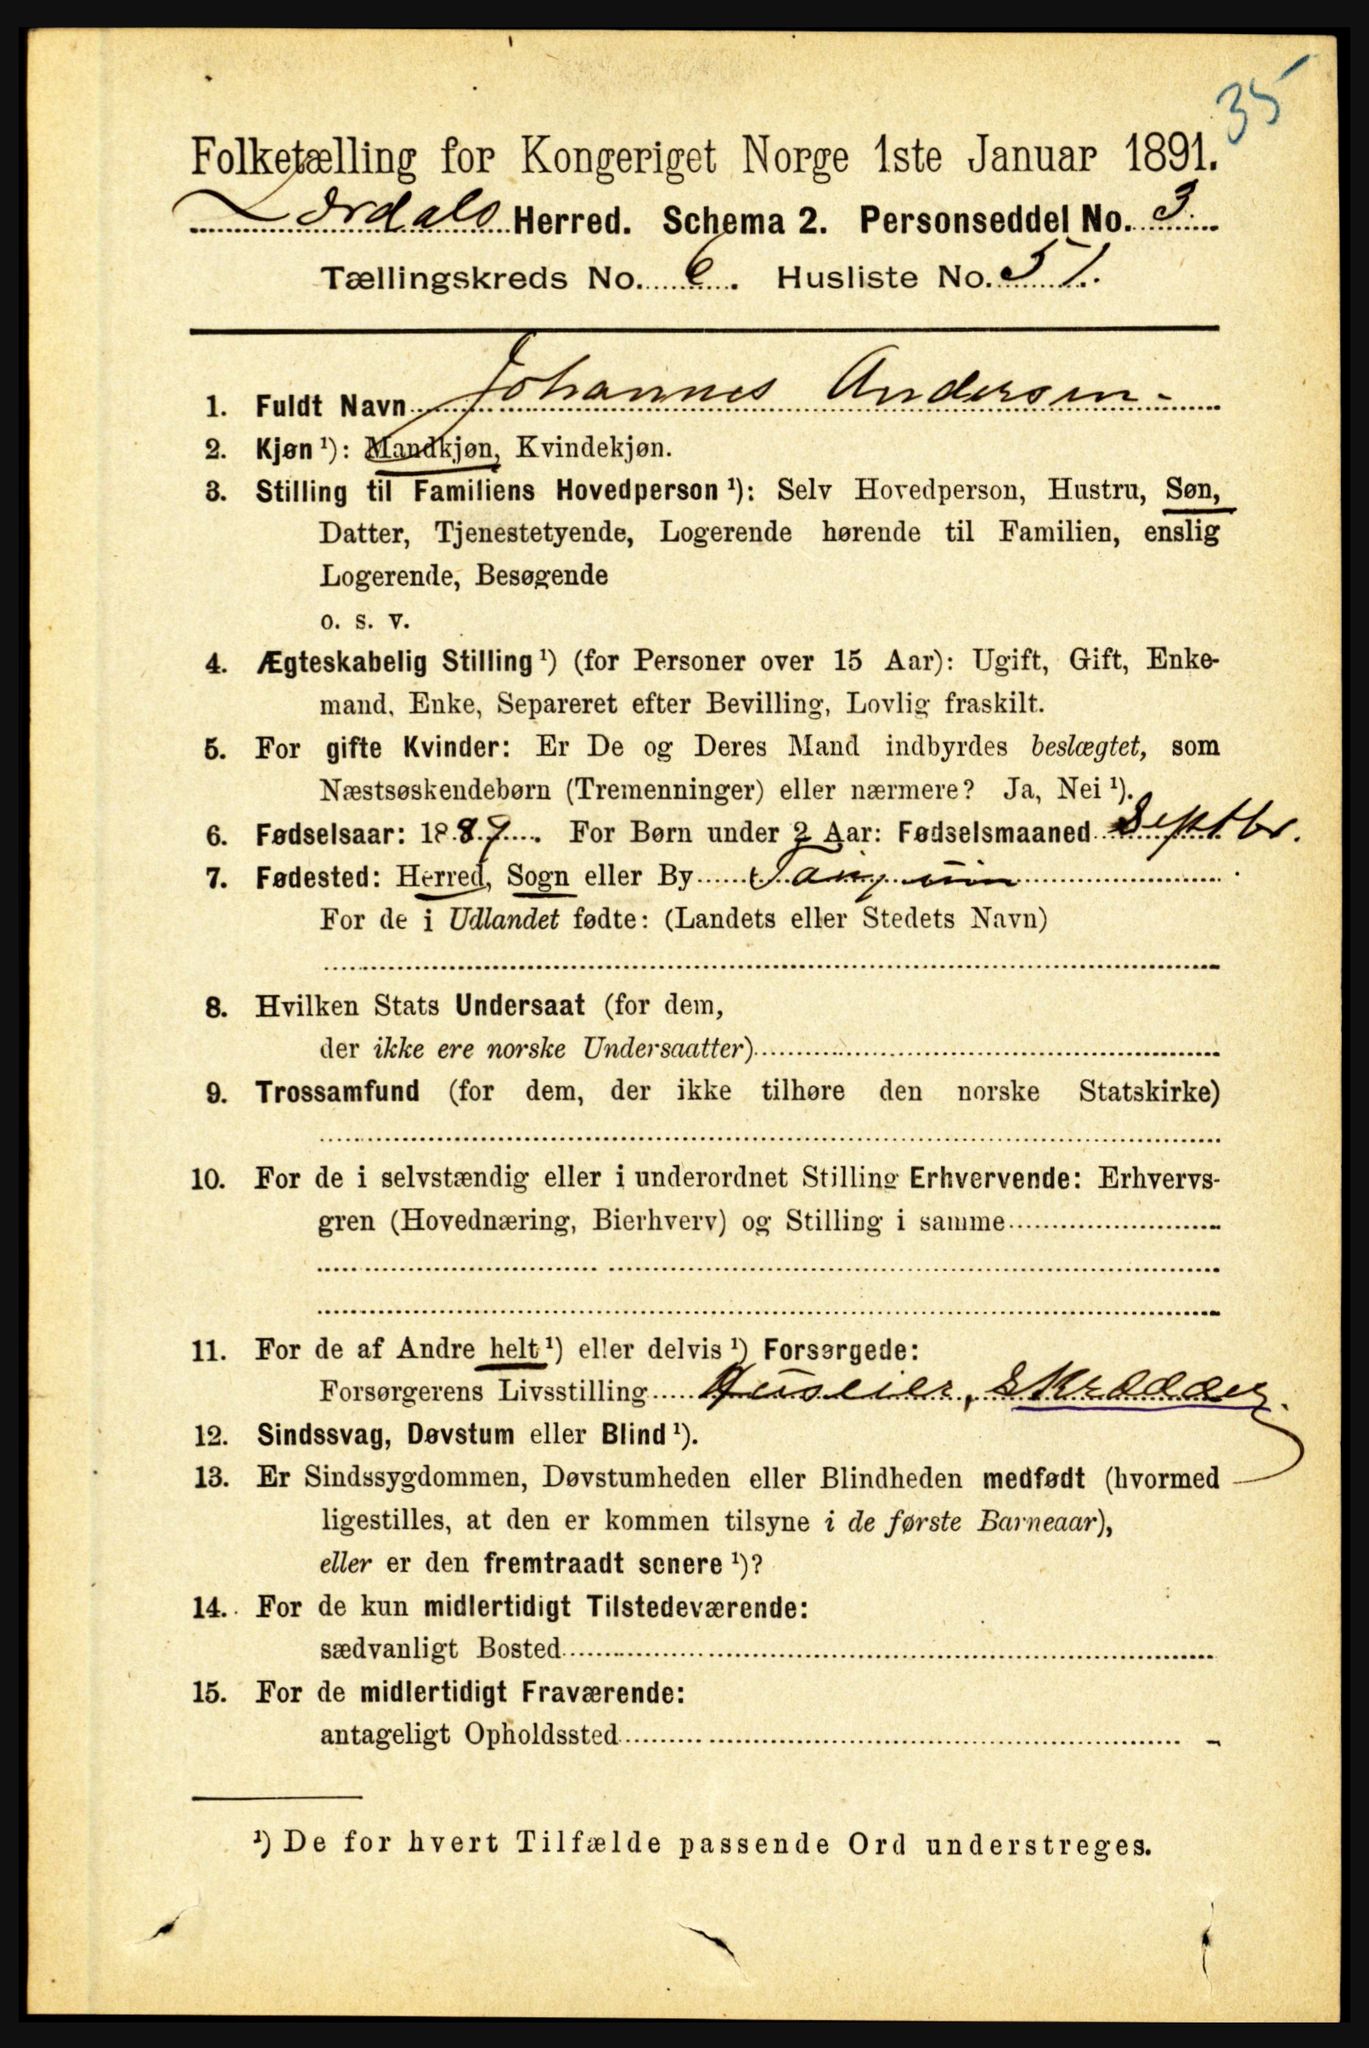 35
Folketælling for Kongeriget Norge 1ste Januar 1891.
Lærdals Herred. Schema 2. Personseddel No. 3.
Tællingskreds No. 6. Husliste No. 51.
1. Fuldt Navn Johannes Andersen.
2. Kjøn ¹): Mandkjøn, Kvindekjøn.
3. Stilling til Familiens Hovedperson ¹): Selv Hovedperson, Hustru, Søn,
Datter, Tjenestetyende, Logerende hørende til Familien, enslig
Logerende, Besøgende
o. s. v.
4. Ægteskabelig Stilling ¹) (for Personer over 15 Aar): Ugift, Gift, Enke-
mand, Enke, Separeret efter Bevilling, Lovlig fraskilt.
5. For gifte Kvinder: Er De og Deres Mand indbyrdes beslægtet, som
Næstsøskendebørn (Tremenninger) eller nærmere? Ja, Nei ¹).
6. Fødselsaar: 1889. For Børn under 2 Aar: Fødselsmaaned Septbr.
7. Fødested: Herred, Sogn eller By
For de i Udlandet fødte: (Landets eller Stedets Navn)
8. Hvilken Stats Undersaat (for dem,
der ikke ere norske Undersaatter)
9. Trossamfund (for dem, der ikke tilhøre den norske Statskirke)
10. For de i selvstændig eller i underordnet Stilling Erhvervende: Erhvervs-
gren (Hovednæring, Bierhverv) og Stilling i samme
11. For de af Andre helt ¹) eller delvis ¹) Forsørgede:
Forsørgerens Livsstilling Huseier, Skrædder.
12. Sindssvag, Døvstum eller Blind ¹).
13. Er Sindssygdommen, Døvstumheden eller Blindheden medfødt (hvormed
ligestilles, at den er kommen tilsyne i de første Barneaar),
eller er den fremtraadt senere ¹)?
14. For de kun midlertidigt Tilstedeværende:
sædvanligt Bosted
15. For de midlertidigt Fraværende:
antageligt Opholdssted
¹) De for hvert Tilfælde passende Ord understreges.